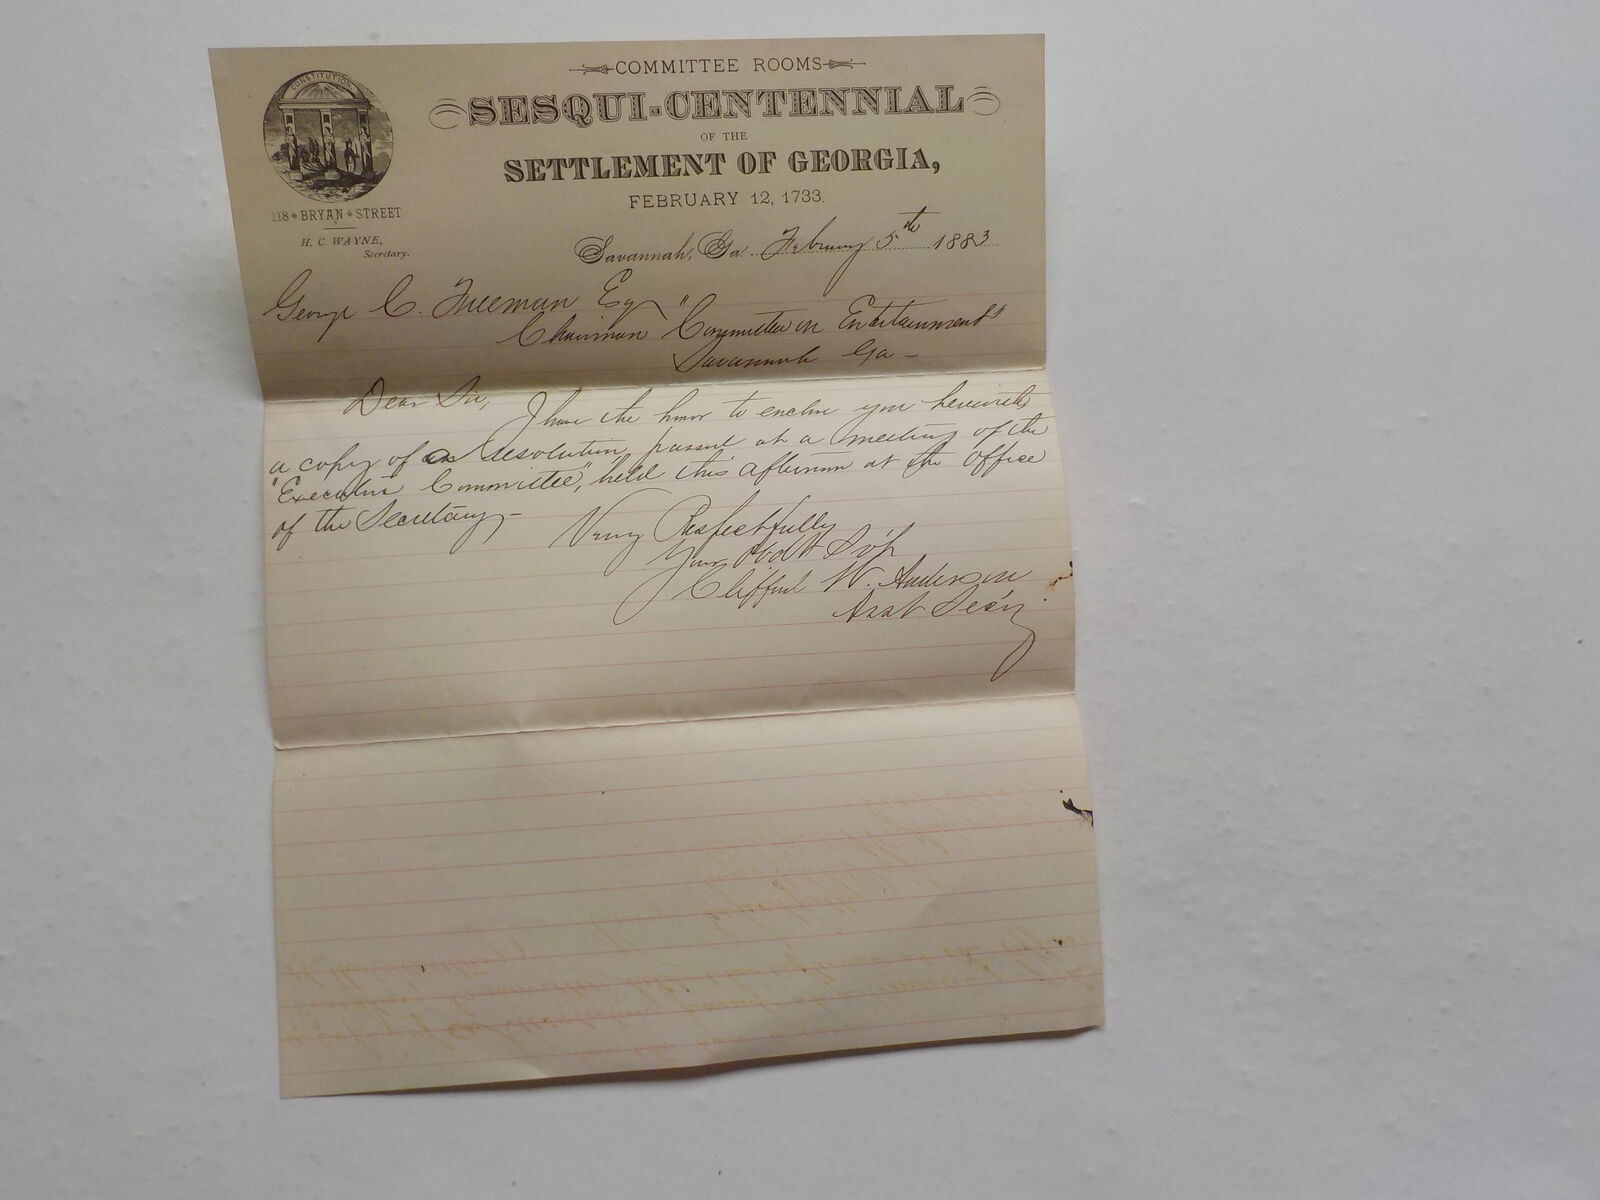 CONSTITUTION
COMMITTEE ROOMS
SESQUI-CENTENNIAL
OF THE
SETTLEMENT OF GEORGIA,
FEBRUARY 12, 1733.
118 BRYAN STREET.
H. C. WAYNE,
Secretary.
Savannah, Ga. February 5th 1883
George C. Freeman Esq
Chairman "Committee on Entertainment"
Savannah Ga -
Dear Sir,
I have the honor to enclose you herewith
a copy of a resolution, passed at a meeting of the
"Executive Committee", held this afternoon at the office
of the Secretary, -
Very Respectfully
Your Obdt Svt
Clifford W. Anderson
Asst Secy